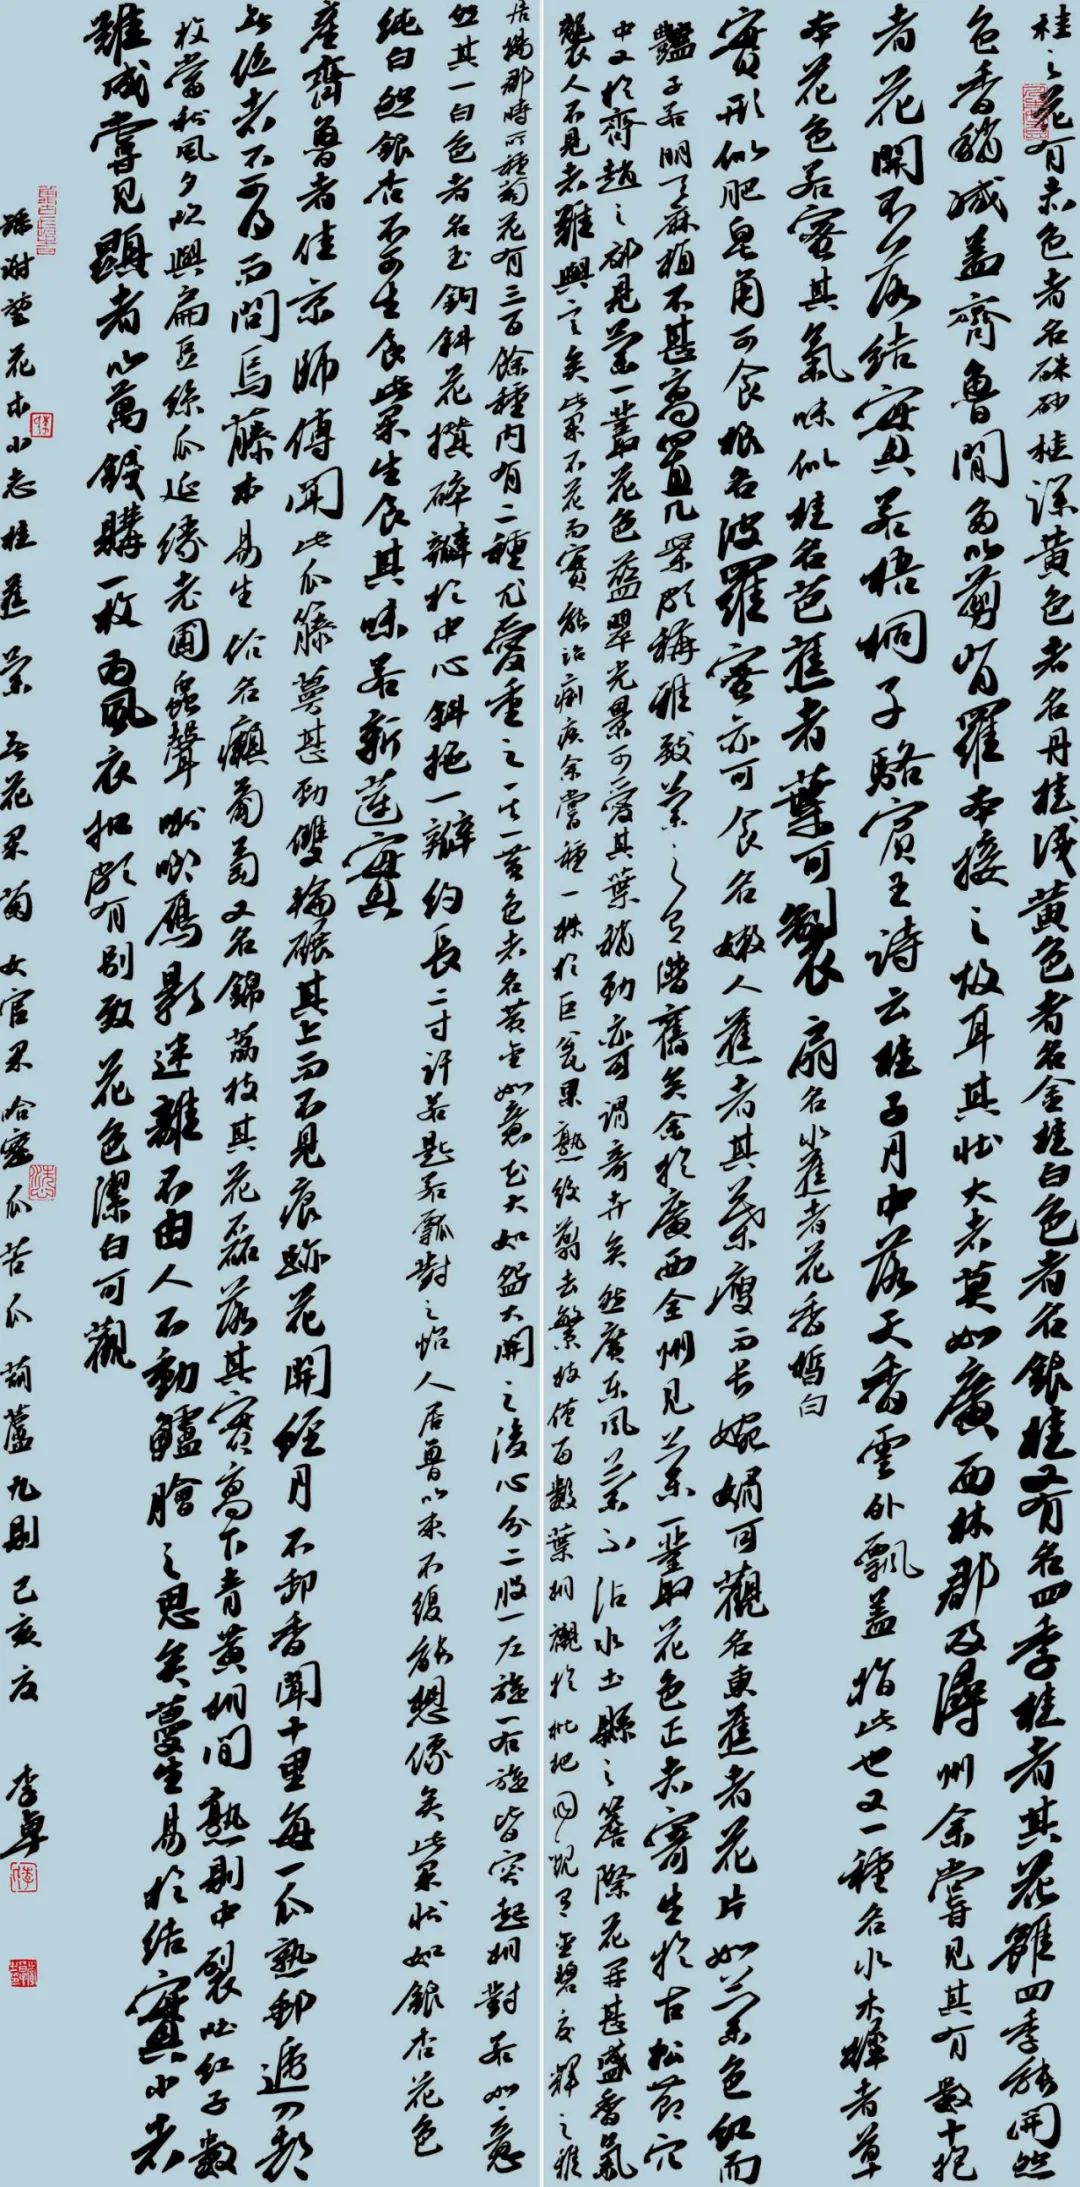 桂之花有朱色者名硃砂桂深黄色者名丹桂浅黄色者名金桂白色者名銀桂又有名四季桂者其花雖四季能開然
色香稍減盖齊魯間多以剪省羅本接之故耳其壯大者莫如廣西林郡及潯州余嘗見其有數十抱
者花開不落結實若梧桐子駱賓王詩云桂子月中落天香雲外飄盖指此也又一種名水木樨者草
本花色若蜜其氣味似桂名芭蕉者葉可製扇名小蕉者花香皙白
實形似肥皂角可食根名波羅蜜亦可食名嫩人蕉者其葉瘦而長婉娟可觀名東蕉者花片如蘭色紅而
豔子若明天麻植不甚高置几案頗稱雅致蘭之名潛舊矣余於廣西全州見蘭一叢花色正赤寄生於古松節穴
中又於齊趙之郁見蘭一叢花色藍翠光景可愛其葉稍勁亦可謂奇卉矣然廣東風蘭不沾水土縣之簷際花開甚盛香氣
襲人不見者難與言矣此果不花而實能治痢疾余嘗種一株於巨瓮果熟後剪去繁枝僅留數葉相襯於枇杷同觀有金碧交輝之雅
居揚郡時所種菊花有三百餘種内有二種尤愛重之其一黄色者名黄金如意花大如盌大開之後心分二股一左旋一右旋皆突起相對若如意
然其一白色者名玉鉤斜花攢碎瓣於中心斜拖一瓣約長二寸許若匙若瓢對之怡人居魯以來不復能想像矣此果狀如銀杏花色
純白然銀杏不可生食此果生食其味若新蓮實
産齊魯者佳京師傳聞此瓜籐蔓甚勁雙輪碾其上而不見痕跡花開經月不卸香聞十里每一瓜熟郵遞入都
無位者不可得而問焉藤本易生俗名癩葡萄又名錦荔枝其花磊落其實高下青黄相間熟則中裂吐紅子數
枚當秋風夕吹與扁豆絲瓜延緣老圃蟲聲啾唧雁影迷離不由人不動鱸膾之思矣蔓生易於結實小者
難成嘗見顯者以萬錢購一枚為風衣扣頗有别致花色潔白可觀
錄謝堃花木小志桂蕉蘭無花果菊女官果哈密瓜苦瓜葫蘆九則己亥夏李卓